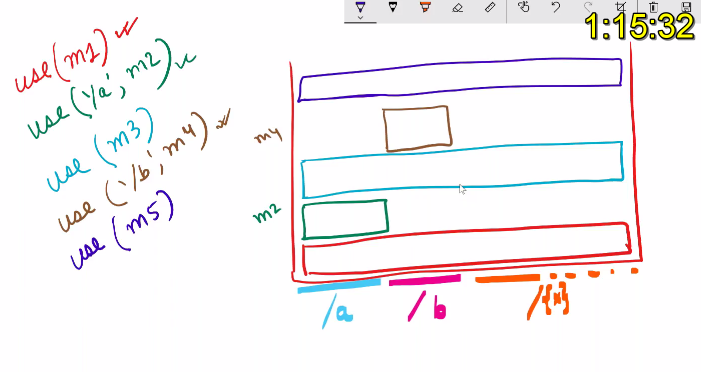 1:15:32
use(m1)
use('/a', m2)
use (m3)
use('/b', m4)
use (m5)
m4
m2
/a
/b
/{x}